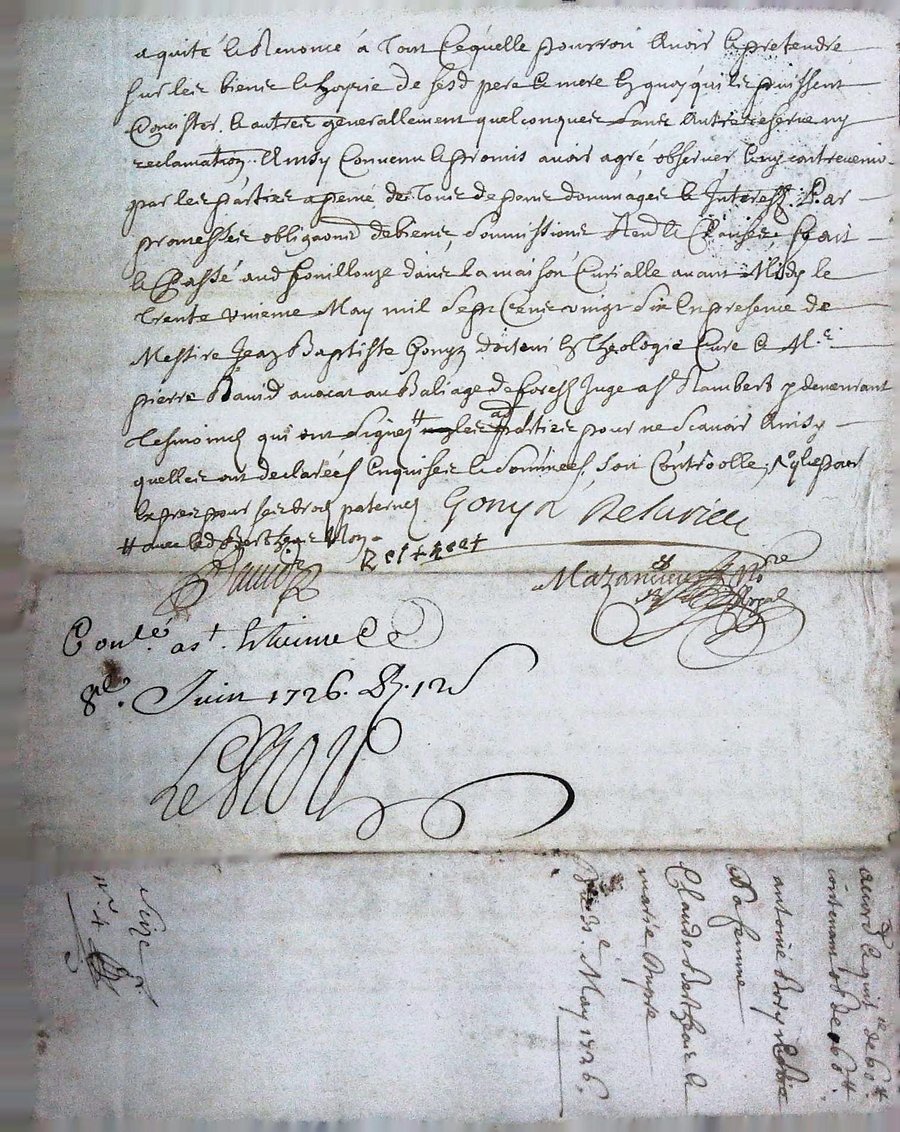 aquité & Renonce a Tout Ce qu'elle pourroit avoir & pretendre
sur les biens & hoyrie de sesd pere & mere En quoy quils puissent
Concister, & autres generallement quelconques sans autre reserve ny
reclamation, Ainsy Convenu & promis avoir agré, observer & ny contrevenir
par les parties a peine de Tous depens dommages & Interest. Par
promesses obligaons de biens, soumissions Rend & Clauses, fait
& Passé aud fouillouze dans la maison Curialle avant Midy le
Trente unieme May mil Sept Cens vingt Six En presence de
Messire Jean Baptiste Gonyn En Theologie Curé & Me.
pierre David avocat au Baliage de forest Juge a St Rambert y demeurant
Tesmoins qui ont signés # les parties pour ne scavoir Ainsy
quelles ont declarées Enquises & sommées, soit Controollé,
Expres pour ses droits paternels Gonyn
# avec led Berthear Non
David
Mazancieu No.re Royal
Con.lé a St. Estienne Ce
8e. Juin 1726. R. 12 s
Leroy
de 60#
contenant de 60#.
antoine Bory
sa femme
Claude Berthear &
marie Dupré
Du 31.e May 1726.
n. 4